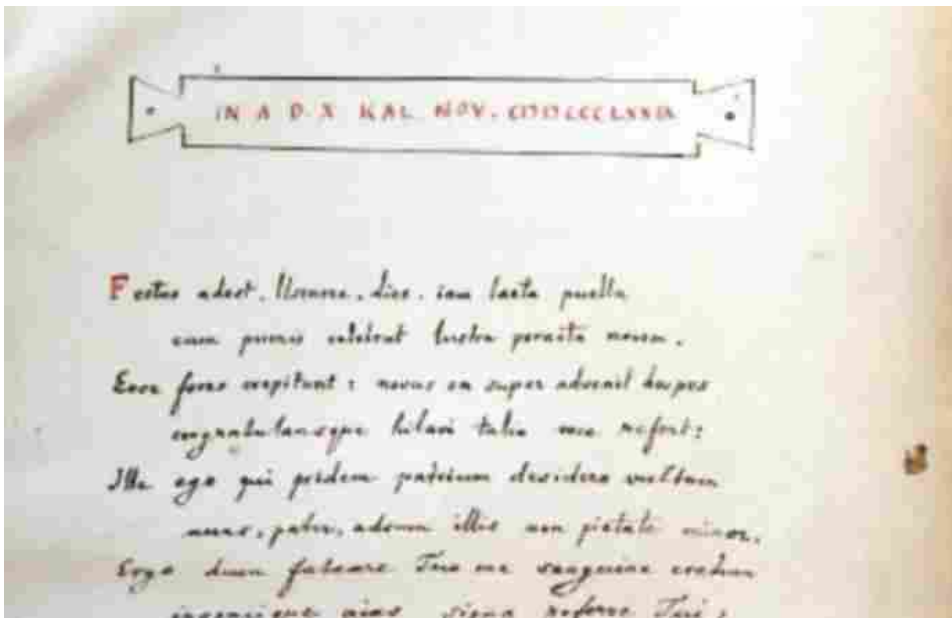 IN A D X KAL NOV.
Festus adest, dies. iam laeta puella
cum pueris celebrat lustra peracta novem.
Ecce fores crepitant: novus en super advenit hospes
congratulansque hilari talia voce refert:
Ille ego qui pridem patrium desidero vultum
pater, adsum illis non pietate minor.
Ergo dum fateare Tuo me sanguine cretum
signa referre Tui,